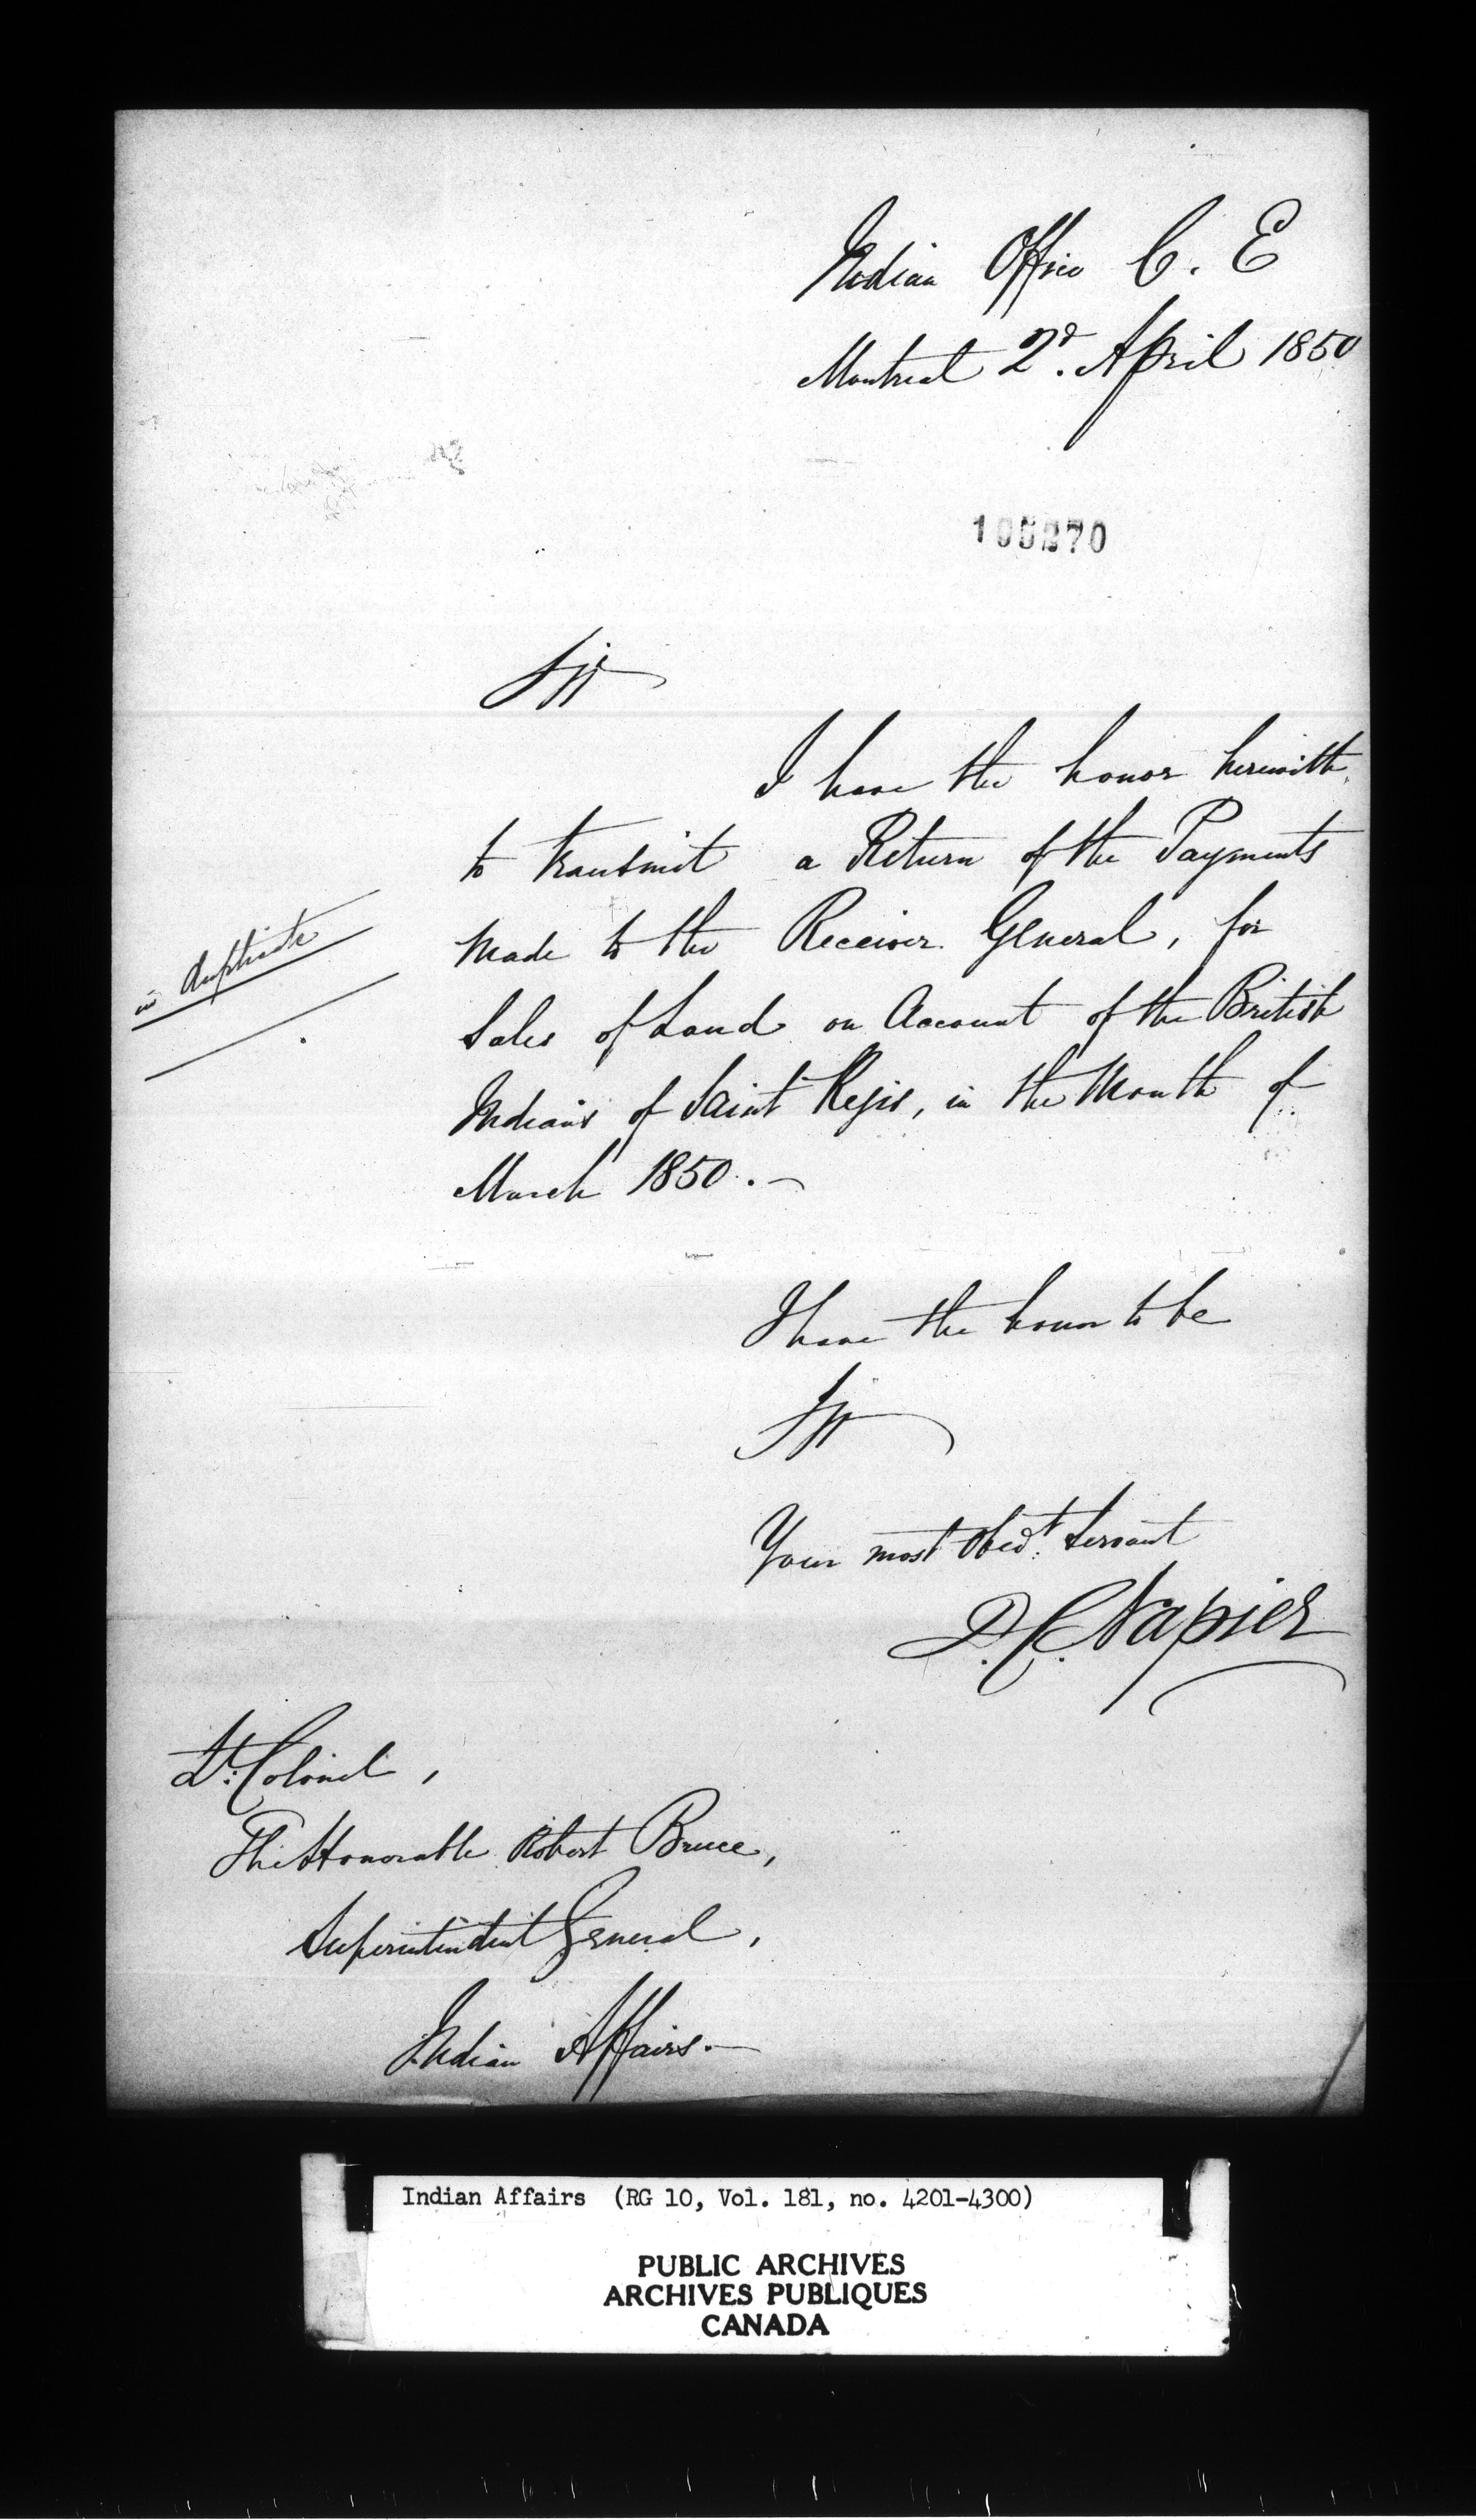 Indian Office C. E
Montreal 2d. April 1850
Sir
I have the honor herewith
to transmit a Return of the Payments
made to the Receiver General, for
Sales of Land on Account of the British
Indians of Saint Regis, in the Month of
March 1850.-
in duplicate
I have the honor to be
Sir
Your most Obedt. Servant
D. C. Napier
Lt. Colonel,
The Honorable Robert Bruce,
Superintendent General,
Indian Affairs.-
Indian Affairs (RG 10, Vol. 181, no. 4201-4300)
PUBLIC ARCHIVES
ARCHIVES PUBLIQUES
CANADA